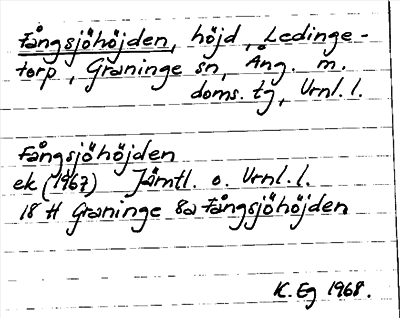 Fångsjöhöjden, höjd, Ledinge-
torp, Graninge sn, Ång. m.
doms. tg, Vrnl. l.
Fångsjöhöjden
ek (1967) Jämtl. o. Vrnl. l.
18 H Graninge 8a Fångsjöhöjden
K. Eg 1968.